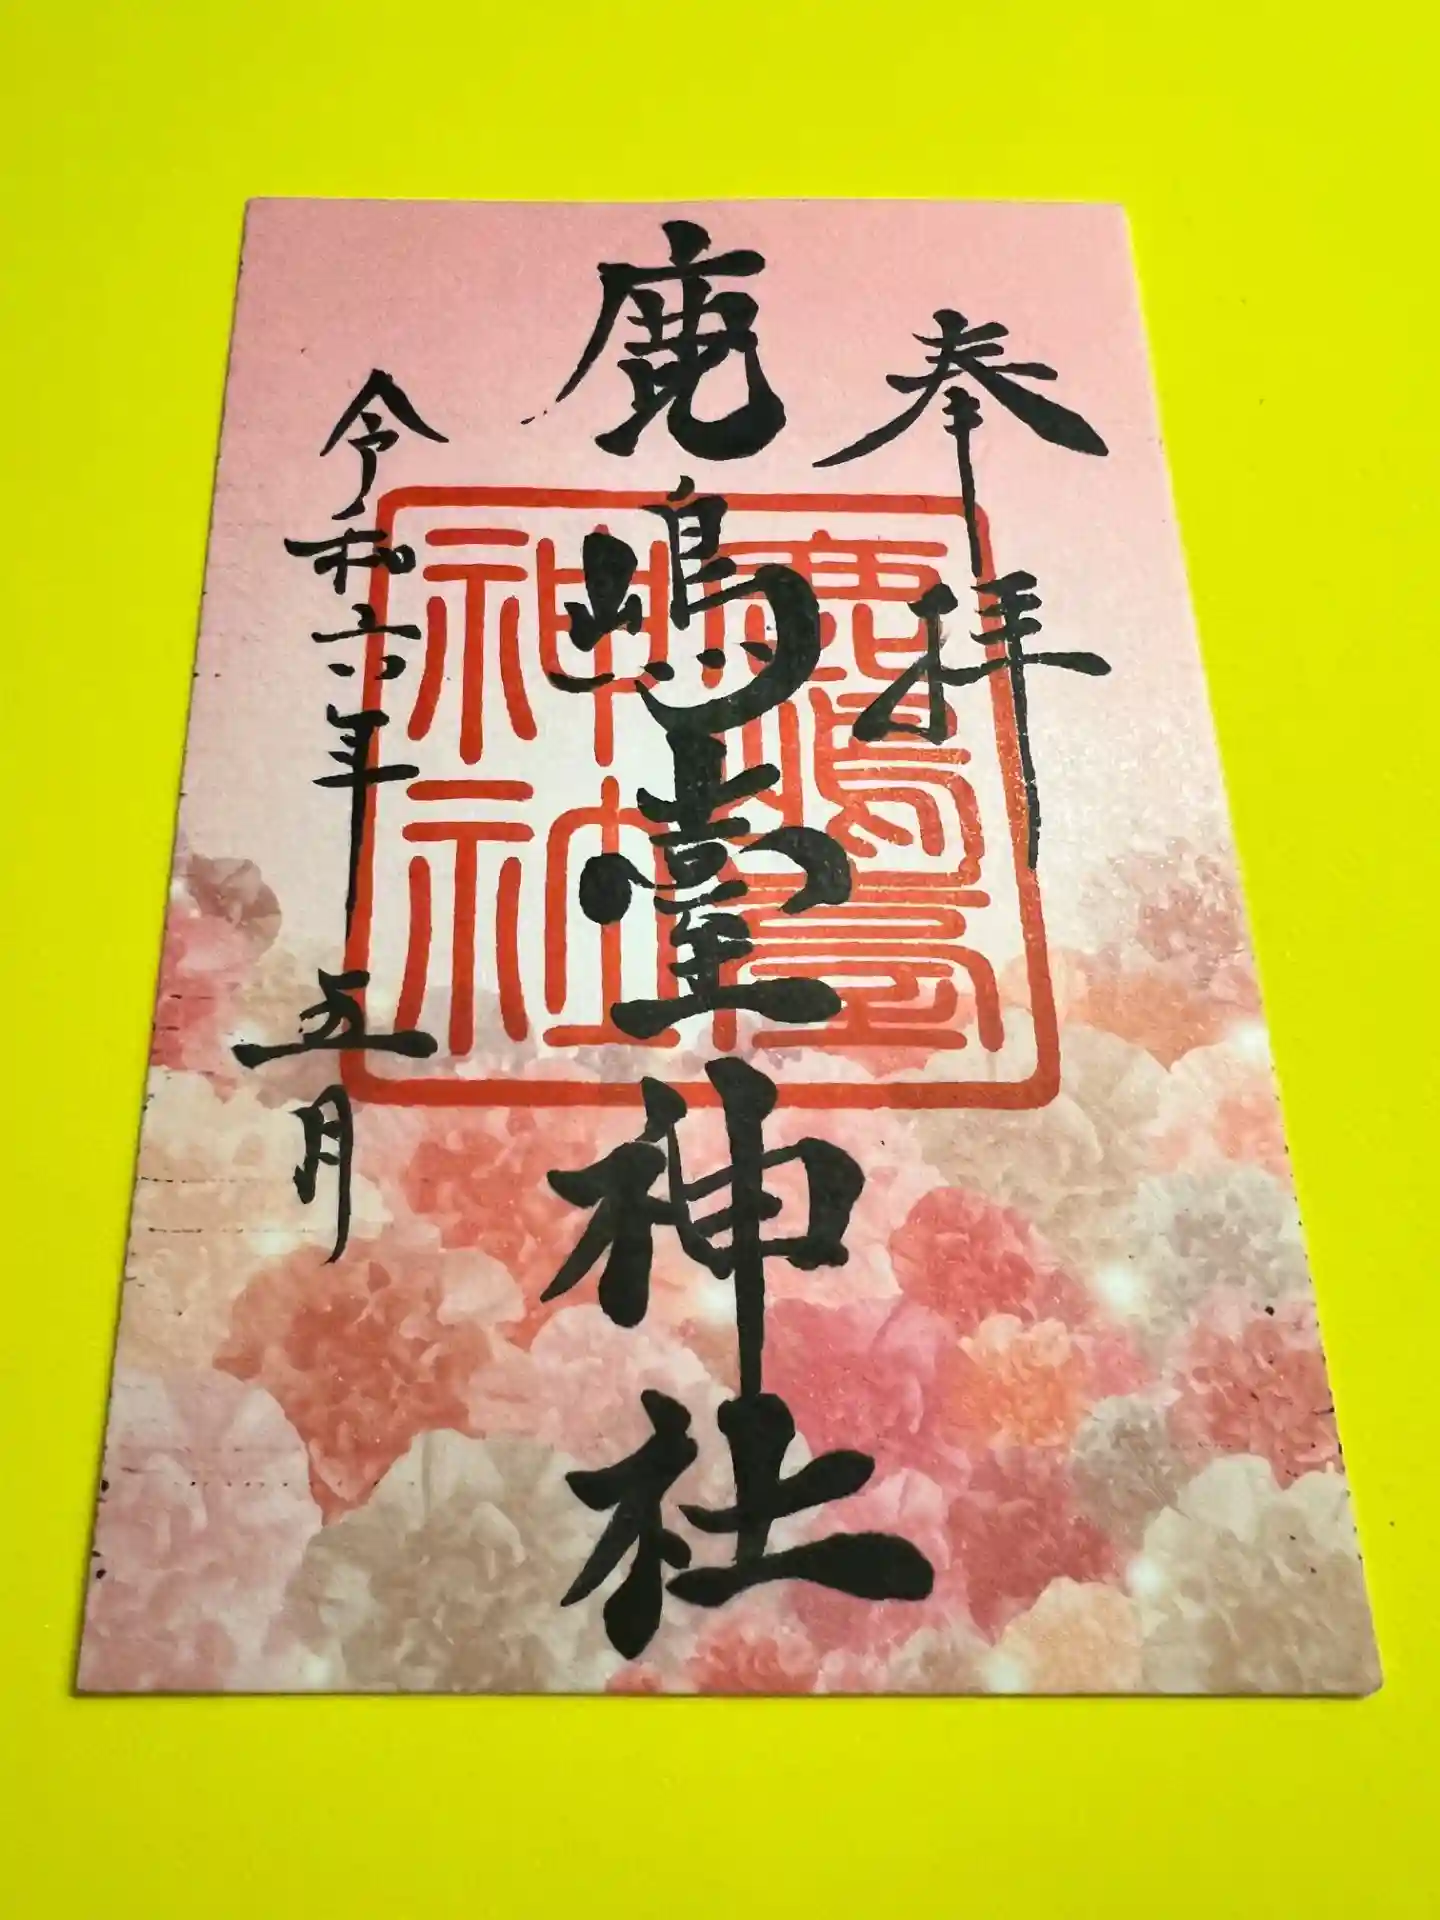 奉拝
鹿嶋臺神社
鹿嶋臺
神社
令和六年五月